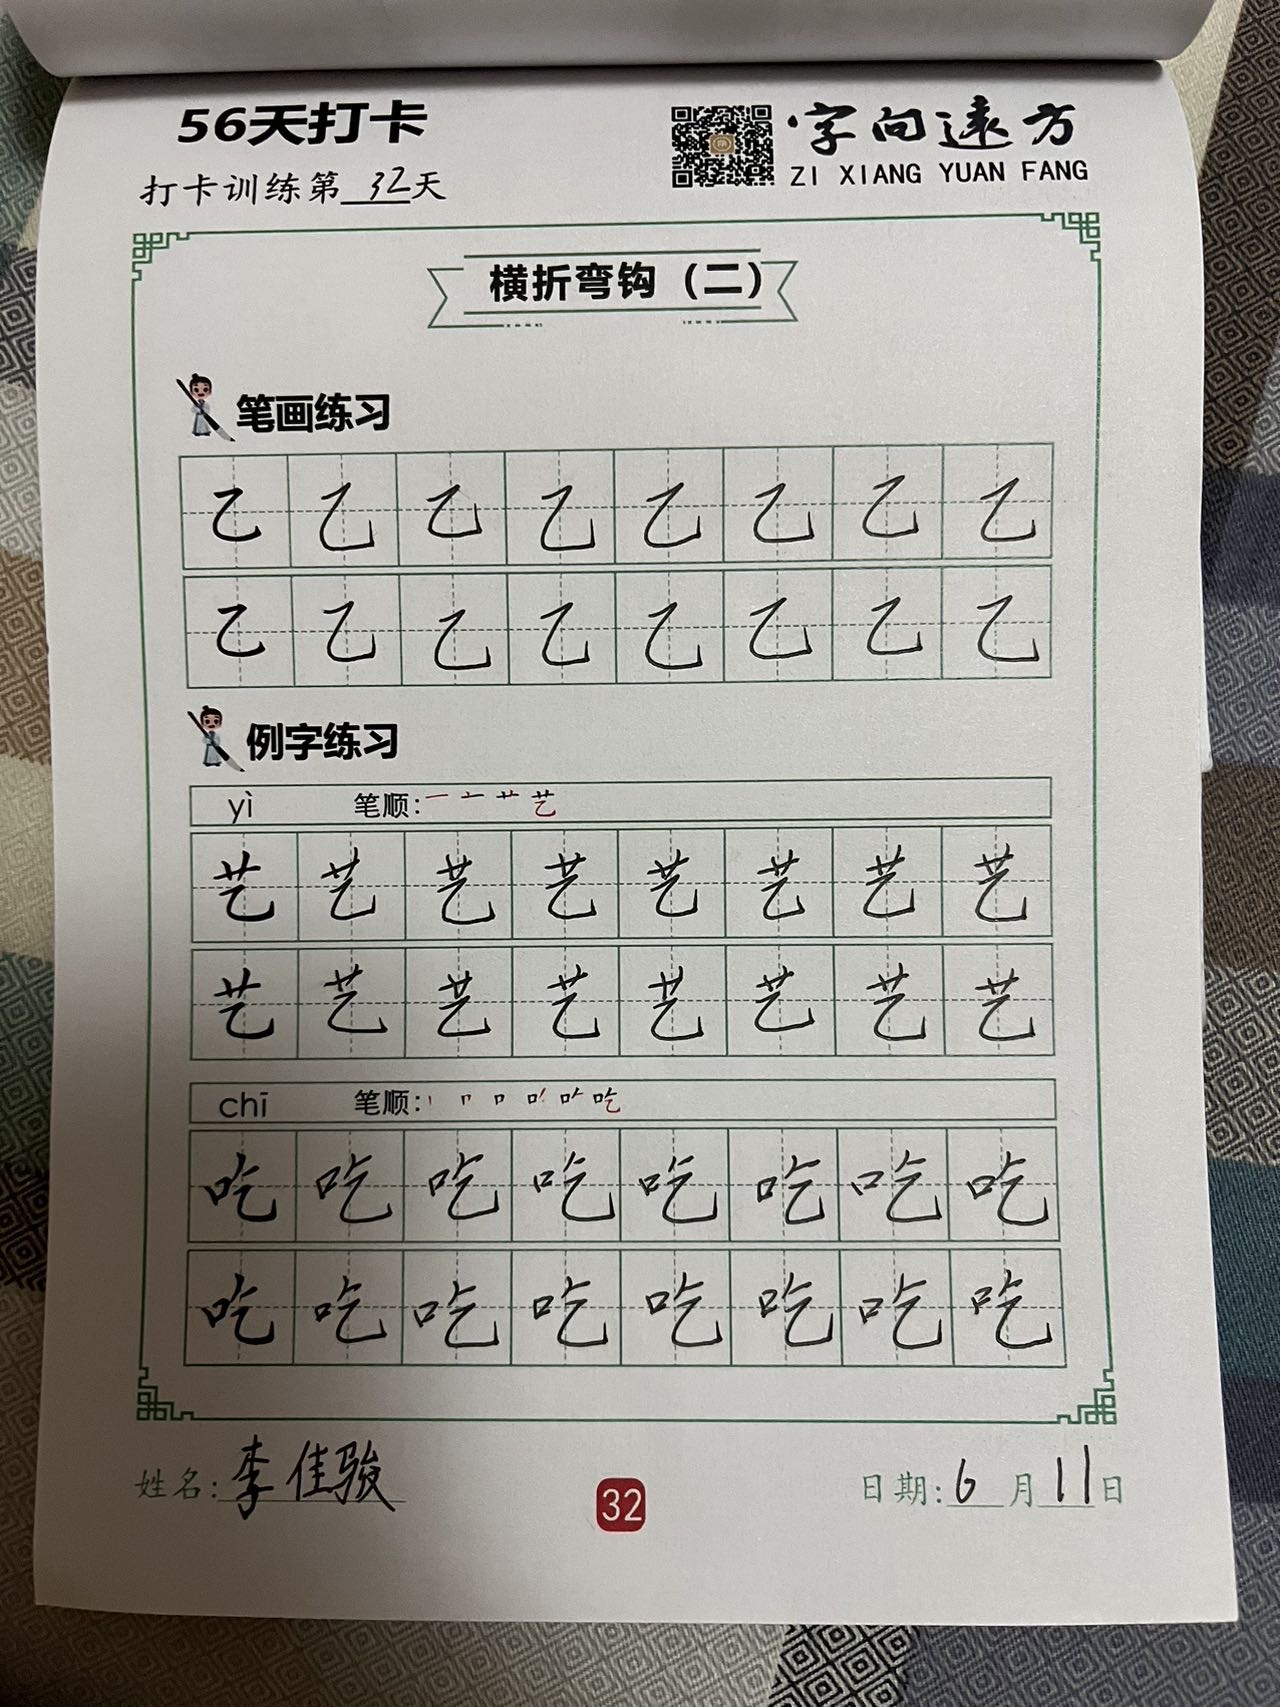 56天打卡
字向遠方
ZI XIANG YUAN FANG
打卡训练第32天
横折弯钩（二）
笔画练习
乙乙乙乙乙乙乙乙
乙乙乙乙乙乙乙乙
例字练习
yì 笔顺:一 十 艹 艺
艺艺艺艺艺艺艺艺
艺艺艺艺艺艺艺艺
chī 笔顺:丨 𠃍 口 吃
吃吃吃吃吃吃吃吃
吃吃吃吃吃吃吃吃
姓名:李佳骏
32
日期:6月11日